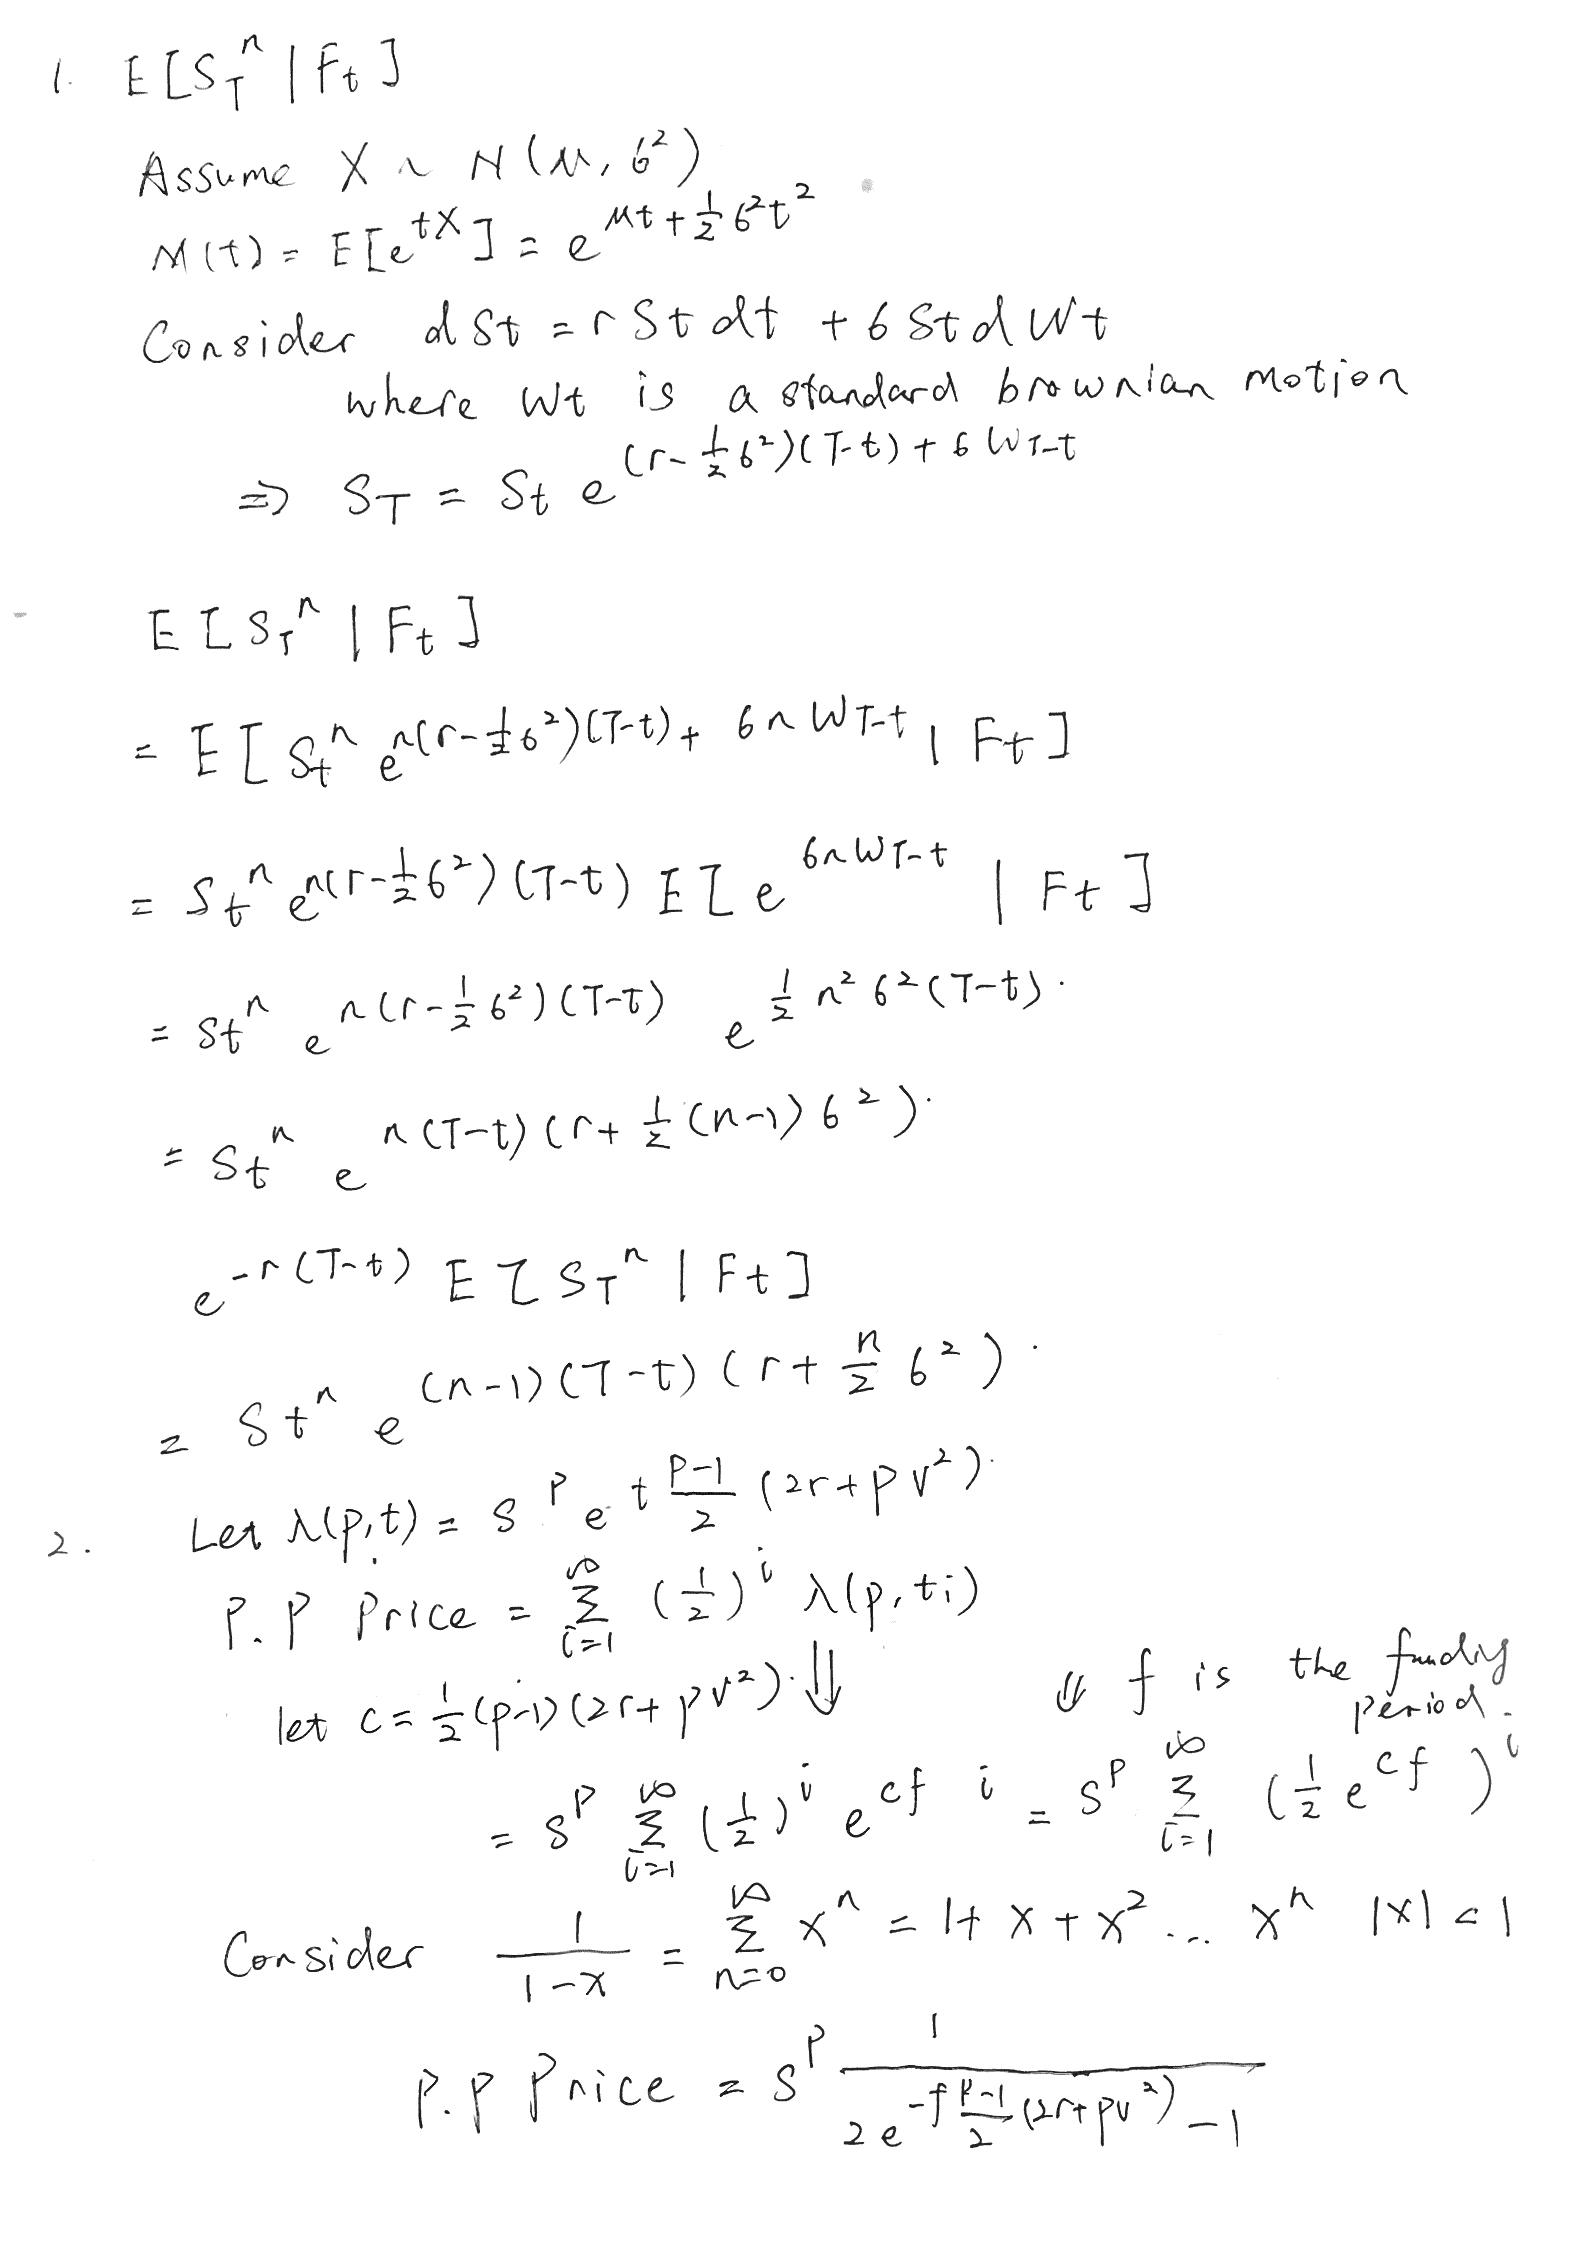 1. E[S_T^n | F_t]
Assume X ~ N(μ, σ²)
M(t) = E[e^{tX}] = e^{μt + ½σ²t²}
Consider dSt = rStdt + σStdWt
where Wt is a standard brownian motion
⇒ S_T = St e^{(r-½σ²)(T-t) + σW_{T-t}}
E[S_T^n | F_t]
= E[S_t^n e^{n(r-½σ²)(T-t) + σnW_{T-t}} | F_t]
= S_t^n e^{n(r-½σ²)(T-t)} E[e^{σnW_{T-t}} | Ft]
= St^n e^{n(r-½σ²)(T-t)} e^{½n²σ²(T-t)}.
= St^n e^{n(T-t)(r+½(n-1)σ²)}.
e^{-r(T-t)} E[S_T^n | Ft]
= St^n e^{(n-1)(T-t)(r+\frac{n}{2}σ²)}.
2. Let λ(p,t) = s^p e^{t\frac{p-1}{2}(2r+pv²)}.
P.P Price = \sum_{i=1}^{∞} (½)^i λ(p,ti)
let c = ½(p-1)(2r+pv²). ⇓ ⇓ f is the funding period.
= s^p \sum_{i=1}^{∞} (½)^i e^{cf i} = s^p \sum_{i=1}^{∞} (½e^{cf})^i
Consider \frac{1}{1-x} = \sum_{n=0}^{∞} x^n = 1+x+x²... x^n |x|<1
P.P Price = s^p \frac{1}{2e^{-f\frac{p-1}{2}(2r+pv²)}-1}